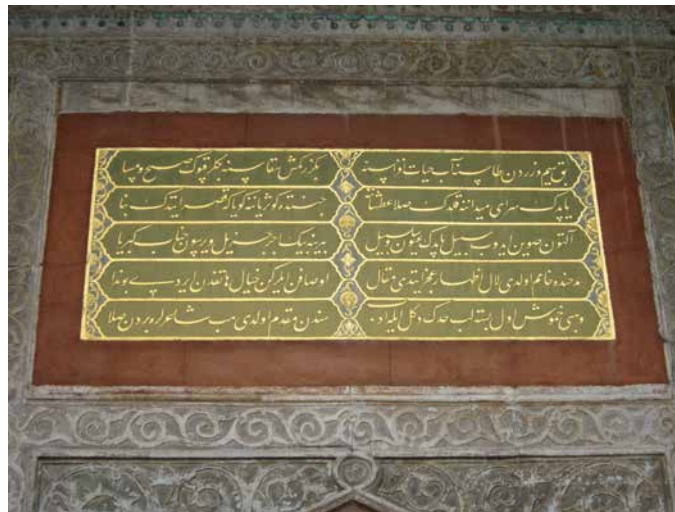 بق سیم و زردن طاسنه آب حیات افزاسنه بکزر کنش سقاسنه بکلر قپوک صبح و مسا
یاپدک سرای میداننه قلدک صلا عطشانه جنتده کوثر یاننه کویا که قصر ایتدک بنا
آلتون صوین ایدوب سبیل یاپدک عیون سلسبیل بیرینه بیک اجر جزیل ویرسون جناب کبریا
مدحنده خامم اولدی لال اظهار عجز ایتدی مقال اوصافن ایلرکن خیال هاتفدن ایردی بو ندا
وهبی خموش اول بسته لب حدک دکل ایله ادب سندن مقدم اولدی هب شاعرلره بردن صلا